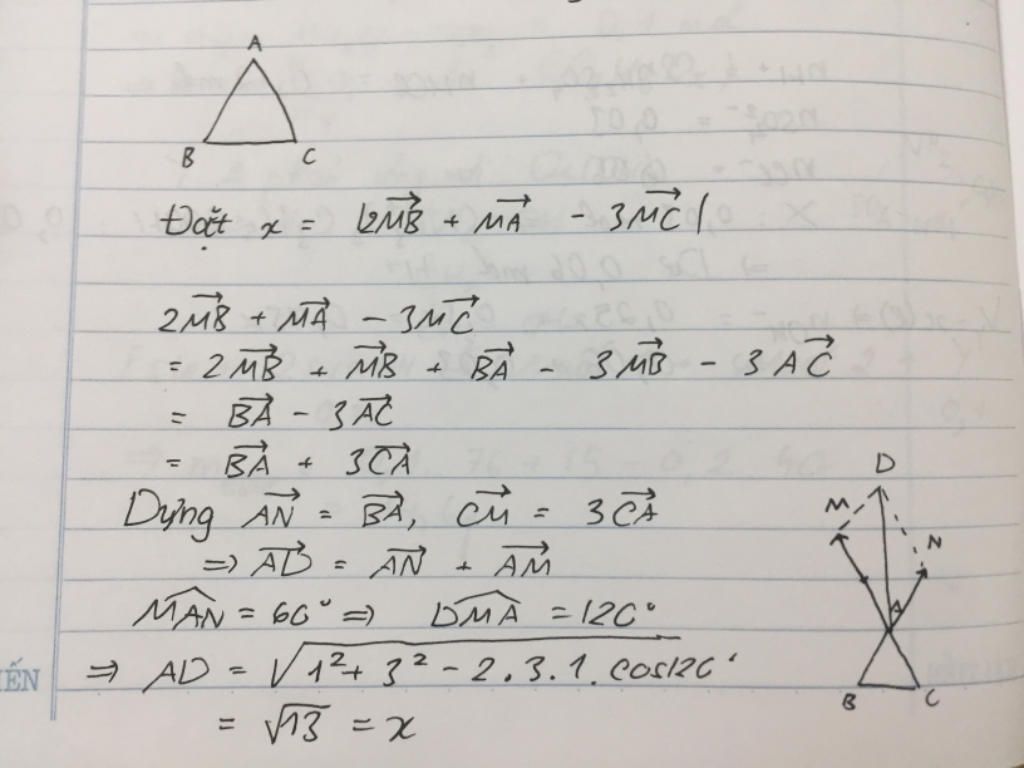 A
B C
Đặt x = |2MB⃗ + MA⃗ - 3MC⃗|
2MB⃗ + MA⃗ - 3MC⃗
= 2MB⃗ + MB⃗ + BA⃗ - 3MB⃗ - 3AC⃗
= BA⃗ - 3AC⃗
= BA⃗ + 3CA⃗
Dựng AN⃗ = BA⃗, CM⃗ = 3CA⃗
⇒ AD⃗ = AN⃗ + AM⃗
D
M
N
A
B C
MAN̂ = 60° ⇒ DMÂ = 120°
⇒ AD = √(1² + 3² - 2.3.1.cos120°)
= √13 = x
ẾN